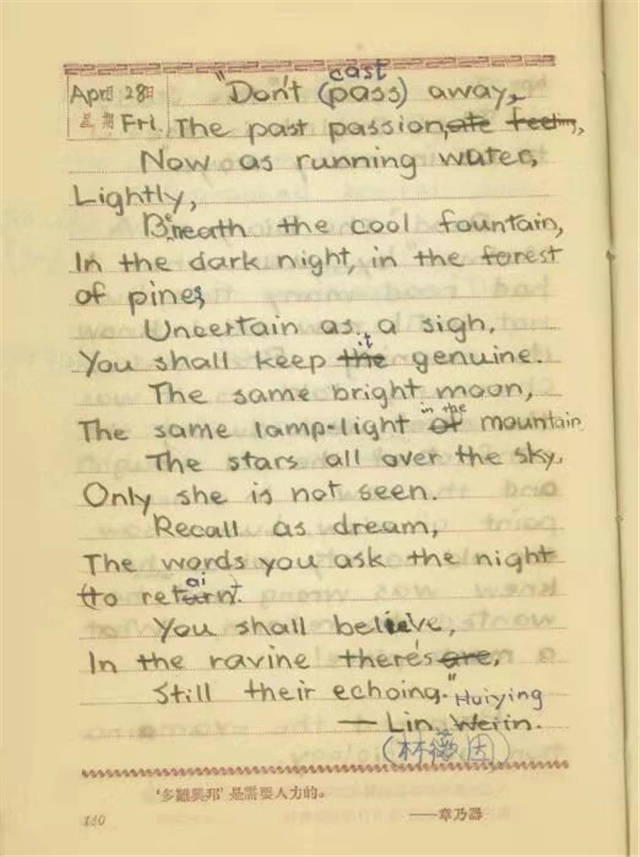 cast
Apr 月 28日 "Don't (pass) away,
星期 Fri. The past passion, ate feeling,
Now as running water,
Lightly,
Beneath the cool fountain,
In the dark night, in the forest
of pines,
Uncertain as a sigh,
it
You shall keep the genuine.
The same bright moon,
in the
The same lamp-light of mountain
The stars all over the sky,
Only she is not seen.
Recall as dream,
The words you ask the night
ai
(to return.
You shall believe,
In the ravine there's are,
Still their echoing."
Huiying
— Lin Weiin.
(林徽因)
是需要人力的。
——章乃器
140